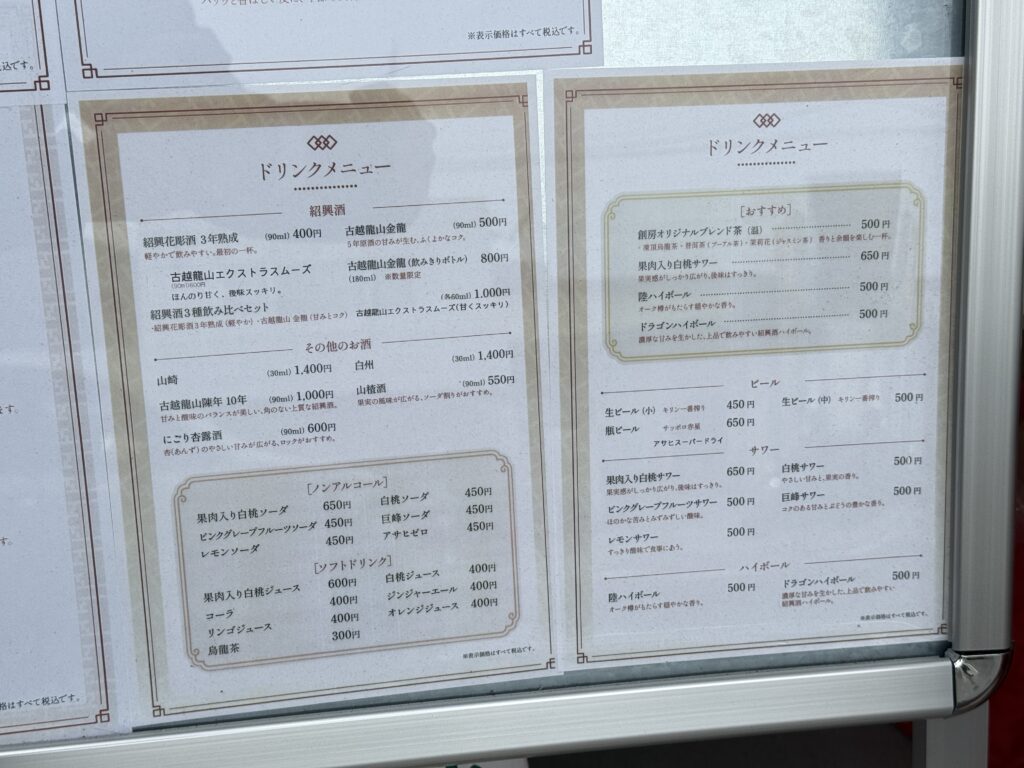 ※表示価格はすべて税込です。
込です。
ます。
す。
格はすべて税込です。
ドリンクメニュー
紹興酒
紹興花彫酒 3年熟成 (90ml) 400円
軽やかで飲みやすい。最初の一杯。
古越龍山金龍 (90ml) 500円
5年原酒の甘みが生む、ふくよかなコク。
古越龍山エクストラスムーズ
(90ml)600円
ほんのり甘く、後味スッキリ。
古越龍山金龍 (飲みきりボトル) 800円
(180ml) ※数量限定
紹興酒3種飲み比べセット (各60ml) 1.000円
・紹興花彫酒3年熟成 (軽やか)・古越龍山 金龍 (甘みとコク) 古越龍山エクストラスムーズ(甘くスッキリ)
その他のお酒
山崎 (30ml) 1,400円
白州 (30ml) 1,400円
古越龍山陳年 10年 (90ml) 1,000円
甘みと酸味のバランスが美しい、角のない上質な紹興酒。
山楂酒 (90ml) 550円
果実の風味が広がる、ソーダ割りがおすすめ。
にごり杏露酒 (90ml) 600円
杏(あんず)のやさしい甘みが広がる、ロックがおすすめ。
[ノンアルコール]
果肉入り白桃ソーダ 650円
白桃ソーダ 450円
ピンクグレープフルーツソーダ 450円
巨峰ソーダ 450円
レモンソーダ 450円
アサヒゼロ 450円
[ソフトドリンク]
果肉入り白桃ジュース 600円
白桃ジュース 400円
コーラ 400円
ジンジャーエール 400円
リンゴジュース 400円
オレンジジュース 400円
烏龍茶 300円
※表示価格はすべて税込です。
ドリンクメニュー
[おすすめ]
創房オリジナルブレンド茶 (温) 500円
・凍頂烏龍茶・普洱茶 (プーアル茶)・茉莉花 (ジャスミン茶) 香りと余韻を楽しむ一杯。
果肉入り白桃サワー 650円
果実感がしっかり広がり、後味はすっきり。
陸ハイボール 500円
オーク樽がもたらす穏やかな香り。
ドラゴンハイボール 500円
濃厚な甘みを生かした、上品で飲みやすい紹興酒ハイボール。
ビール
生ビール (小) キリン一番搾り 450円
生ビール (中) キリン一番搾り 500円
瓶ビール サッポロ赤星 650円
アサヒスーパードライ
サワー
果肉入り白桃サワー 650円
果実感がしっかり広がり、後味はすっきり。
白桃サワー 500円
やさしい甘みと、果実の香り。
ピンクグレープフルーツサワー 500円
ほのかな苦みとみずみずしい酸味。
巨峰サワー 500円
コクのある甘みとぶどうの豊かな香り。
レモンサワー 500円
すっきり酸味で食事にあう。
ハイボール
陸ハイボール 500円
オーク樽がもたらす穏やかな香り。
ドラゴンハイボール 500円
濃厚な甘みを生かした、上品で飲みやすい
紹興酒ハイボール。
※表示価格はすべて税込です。